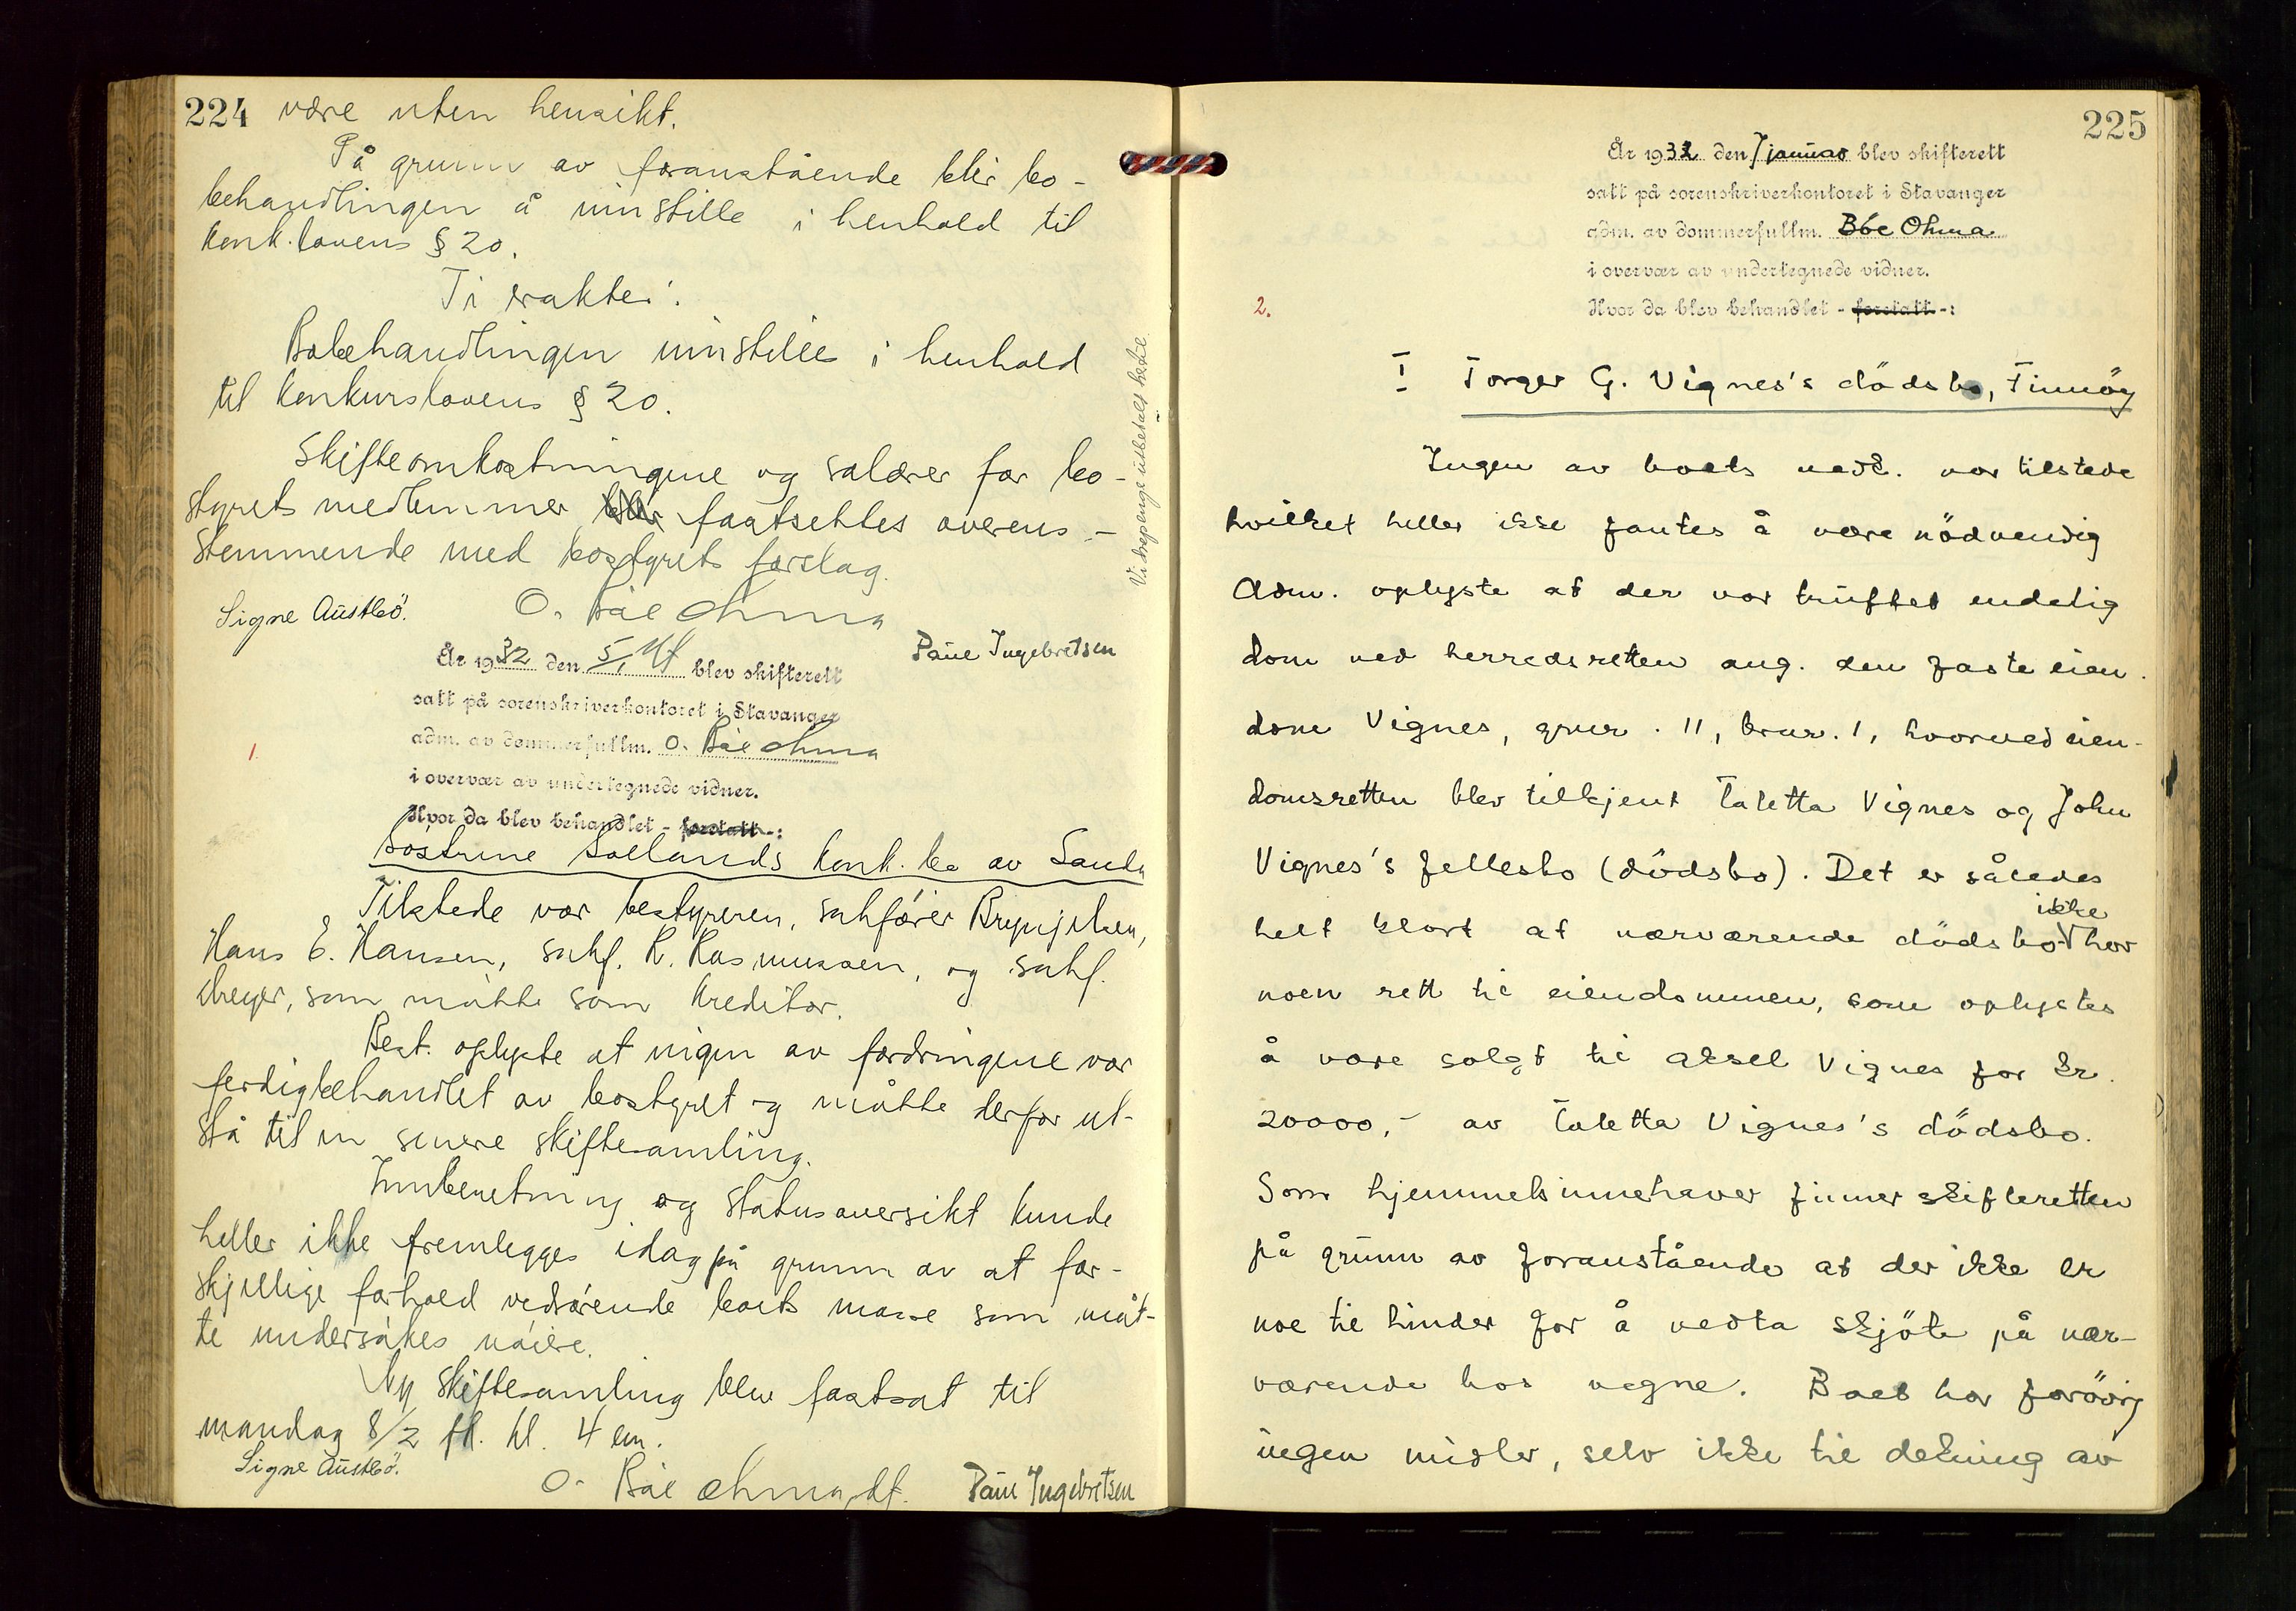 224 være uten hensikt.
På grunn av foranstående blir bo-
behandlingen å innstille i henhold til
konk.lovens § 20.
Ti eraktes:
Bobehandlingen innstilles i henhold
til konkurslovens § 20.
Skifteomkostningene og salærer for bo-
styrets medlemmer fastsettes overens-
stemmende med bostyrets forslag.
Signe Austbö. O. Bøe Ohma
Paul Ingebretsen
Vidnepenge utbetalt hertil
År 1932 den 5/1 blev skifterett
satt på sorenskriverkontoret i Stavanger
adm. av dommerfullm. O. Bøe Ohma
1.
i overvær av undertegnede vidner.
Hvor da blev behandlet - foretatt -:
konk.bo av Sand
Tilstede var bestyreren, sakfører Brynjelsen,
Hans E. Hansen, sakf. R. Rasmussen, og sakf.
Meyer, som møtte som kreditor.
Best. oplyste at ingen av fordringene var
ferdigbehandlet av bostyret og måtte derfor ut-
stå til en senere skiftesamling.
Innberetning og statusoversikt kunde
heller ikke fremlegges idag på grunn av at for-
skjellige forhold vedrørende boets masse som måt-
te undersøkes nøiere.
Ny skiftesamling blev fastsat til
mandag 8/2 kl. 4 em.
Signe Austbö.
O. Bøe Ohma, df. Paul Ingebretsen
225
År 1932 den 7 januar blev skifterett
satt på sorenskriverkontoret i Stavanger
adm. av dommerfullm. Bøe Ohma
i overvær av undertegnede vidner.
2.
Hvor da blev behandlet - foretatt -:
I Torger G. Vignes's dödsbo, Finnöy
Ingen av boets vedk. var tilstede
hvilket heller ikke fantes å være nödvendig
Adm. oplyste at der var truffet endelig
dom ved herredsretten ang. den faste eien-
dom Vignes, gnr. 11, bnr. 1, hvorved eien-
domsretten blev tilkjent Taletta Vignes og John
Vignes's fellesbo (dödsbo). Det er således
helt klart at nærværende dödsbo ikke har
noen rett til eiendommen, som oplystes
å være solgt til Aksel Vignes for kr.
20000,- av Taletta Vignes's dödsbo.
Som hjemmelsinnehaver finner skifteretten
på grunn av foranstående at der ikke er
noe til hinder for å vedta skjöte på nær-
værende bos vegne. Boet har forövrig
ingen midler, selv ikke til dekning av